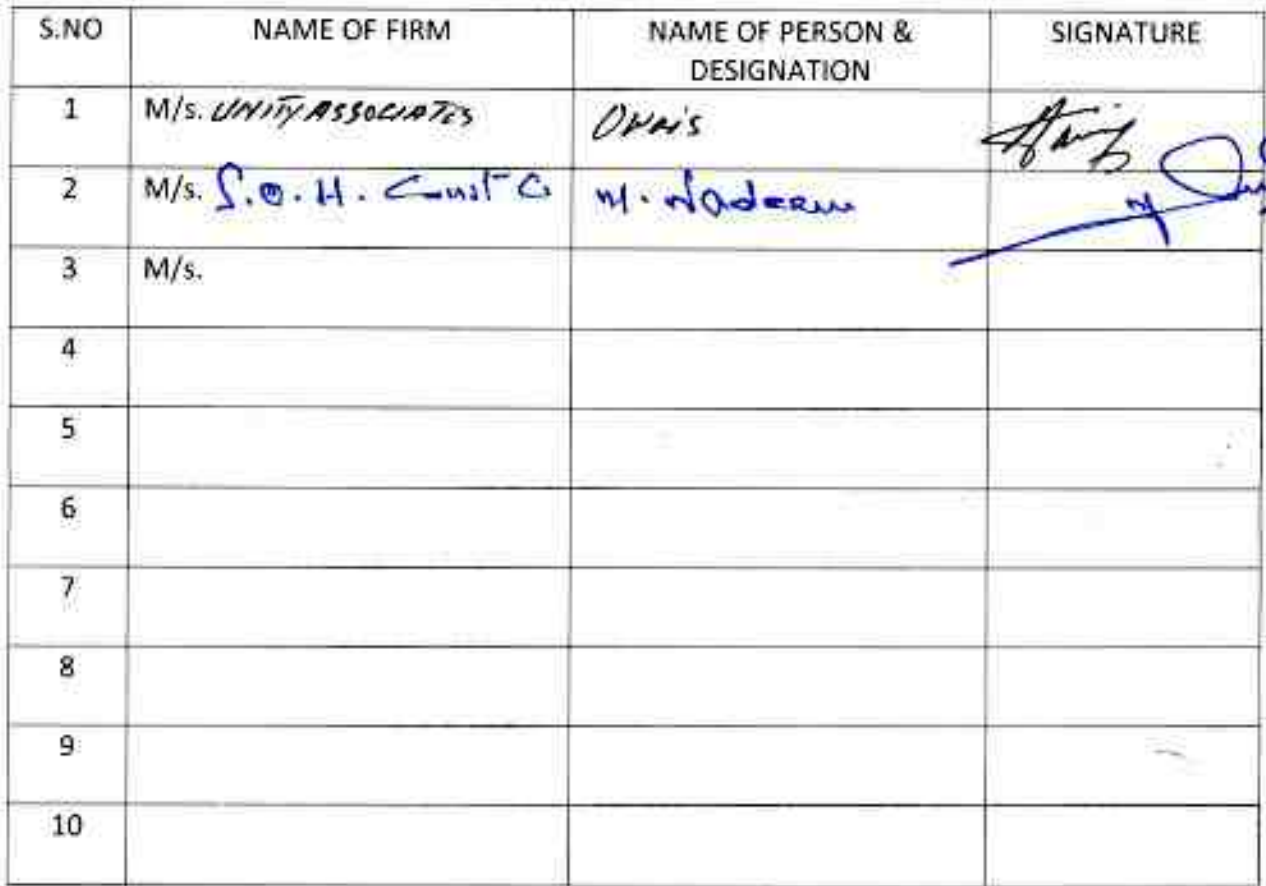 S.NO NAME OF FIRM NAME OF PERSON & DESIGNATION SIGNATURE
1 M/s. UNITY ASSOCIATES Owais
2 M/s. S.O.H. Const Co M. Nadeem
3 M/s.
4
5
6
7
8
9
10